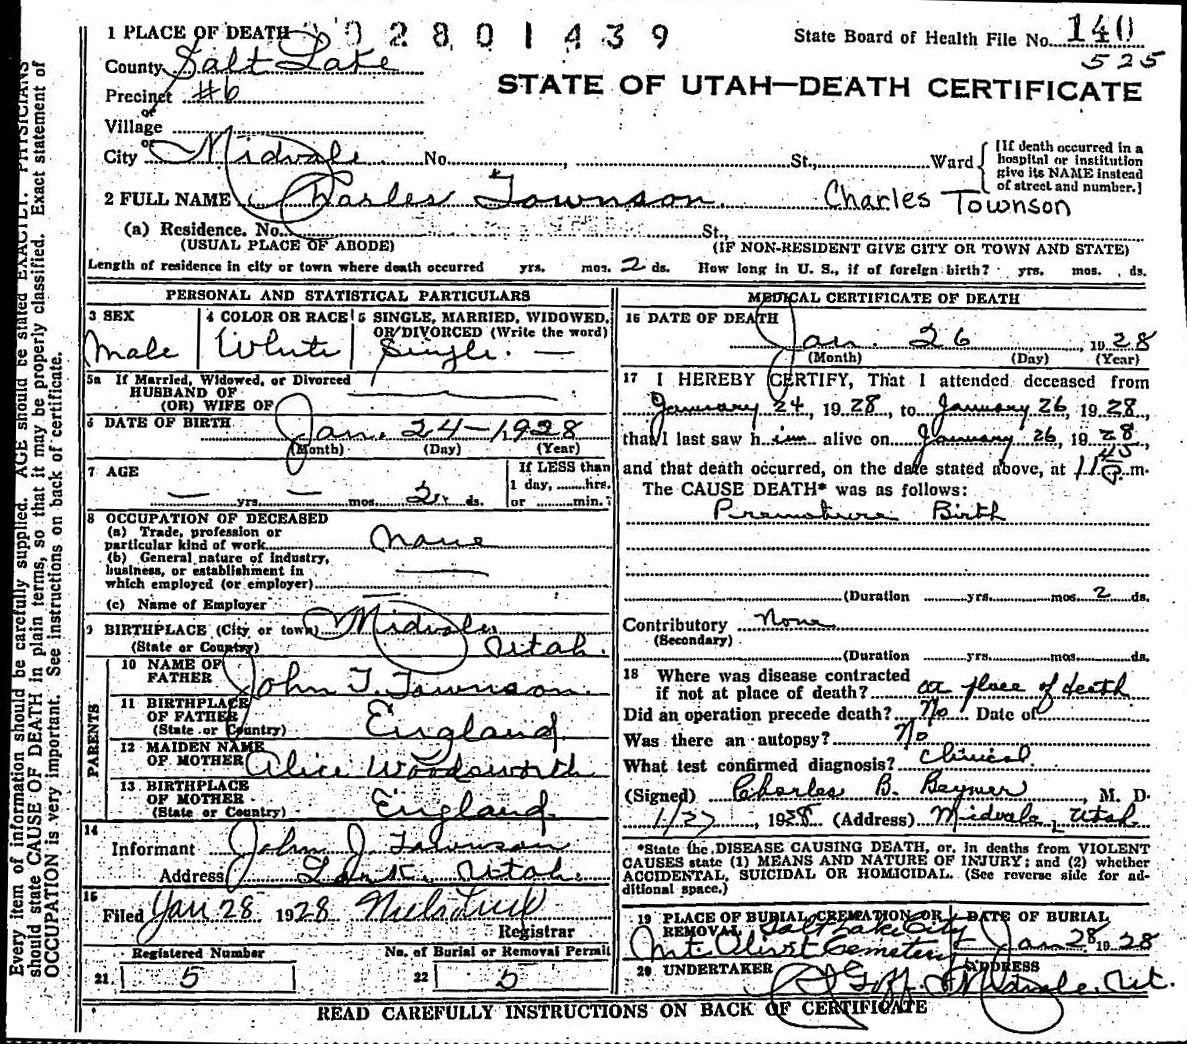 1 PLACE OF DEATH 2 8 0 1 4 3 9 State Board of Health File No. 140
County Salt Lake 525
STATE OF UTAH—DEATH CERTIFICATE
Precinct #6
or
Village
or
City Midvale No. , St., Ward
[If death occurred in a
hospital or institution
give its NAME instead
of street and number.]
2 FULL NAME Charles Townson Charles Townson
(a) Residence. No. St.,
(USUAL PLACE OF ABODE) (IF NON-RESIDENT GIVE CITY OR TOWN AND STATE)
Length of residence in city or town where death occurred yrs. mos. 2 ds. How long in U. S., if of foreign birth? yrs. mos. ds.
PERSONAL AND STATISTICAL PARTICULARS
3 SEX 4 COLOR OR RACE 5 SINGLE, MARRIED, WIDOWED,
OR DIVORCED (Write the word)
Male White Single. —
5a If Married, Widowed, or Divorced
HUSBAND OF
(OR) WIFE OF
6 DATE OF BIRTH Jan. 24-1928
(Month) (Day) (Year)
7 AGE If LESS than
1 day, hrs.
— yrs. — mos. 2 ds. or min.?
8 OCCUPATION OF DECEASED
(a) Trade, profession or
particular kind of work None
(b) General nature of industry,
business, or establishment in
which employed (or employer)
(c) Name of Employer
9 BIRTHPLACE (City or town) Midvale
(State or Country) Utah.
PARENTS
10 NAME OF
FATHER John T. Townson.
11 BIRTHPLACE
OF FATHER England.
(State or Country)
12 MAIDEN NAME
OF MOTHER Alice Woodsworth
13 BIRTHPLACE
OF MOTHER England.
(State or Country)
14
Informant John J. Townson
Address Lark, Utah.
15
Filed Jan 28 1928
Registrar
Registered Number No. of Burial or Removal Permit
21 5 22 5
MEDICAL CERTIFICATE OF DEATH
16 DATE OF DEATH
Jan. 26, 1928
(Month) (Day) (Year)
17 I HEREBY CERTIFY, That I attended deceased from
January 24, 1928, to January 26, 1928,
that I last saw him alive on January 26, 1928,
and that death occurred, on the date stated above, at 11 45 P.m.
The CAUSE DEATH* was as follows:
Premature Birth
(Duration yrs. mos. 2 ds.
Contributory None
(Secondary)
(Duration yrs. mos. ds.
18 Where was disease contracted
if not at place of death? at place of death
Did an operation precede death? No Date of
Was there an autopsy? No
What test confirmed diagnosis? clinical
(Signed) Charles B. Beymer, M. D.
1/27, 1928 (Address) Midvale, Utah
*State the DISEASE CAUSING DEATH, or, in deaths from VIOLENT
CAUSES state (1) MEANS AND NATURE OF INJURY; and (2) whether
ACCIDENTAL, SUICIDAL OR HOMICIDAL. (See reverse side for ad-
ditional space.)
19 PLACE OF BURIAL, CREMATION OR DATE OF BURIAL
REMOVAL Salt Lake City
Mt. Olivet Cemetery Jan 28 1928
20 UNDERTAKER ADDRESS
Goff Midvale, Ut.
READ CAREFULLY INSTRUCTIONS ON BACK OF CERTIFICATE
Every item of information should be carefully supplied. AGE should be stated EXACTLY. PHYSICIANS
should state CAUSE OF DEATH in plain terms, so that it may be properly classified. Exact statement of
OCCUPATION is very important. See instructions on back of certificate.